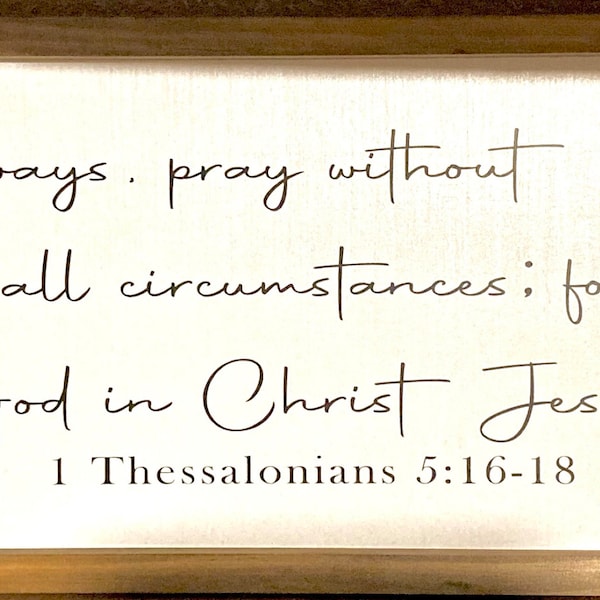 ways. pray without
all circumstances; fo
God in Christ Jes
1 Thessalonians 5:16-18